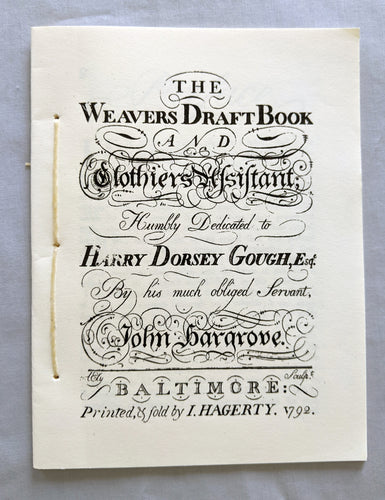 THE
WEAVERS DRAFT BOOK
AND
Clothiers Aſsiſtant;
Humbly Dedicated to
HARRY DORSEY GOUGH, Esqr.
By his much obliged Servant,
John Hargrove.
Sculpt.
BALTIMORE:
Printed, & ſold by I. HAGERTY. 1792.